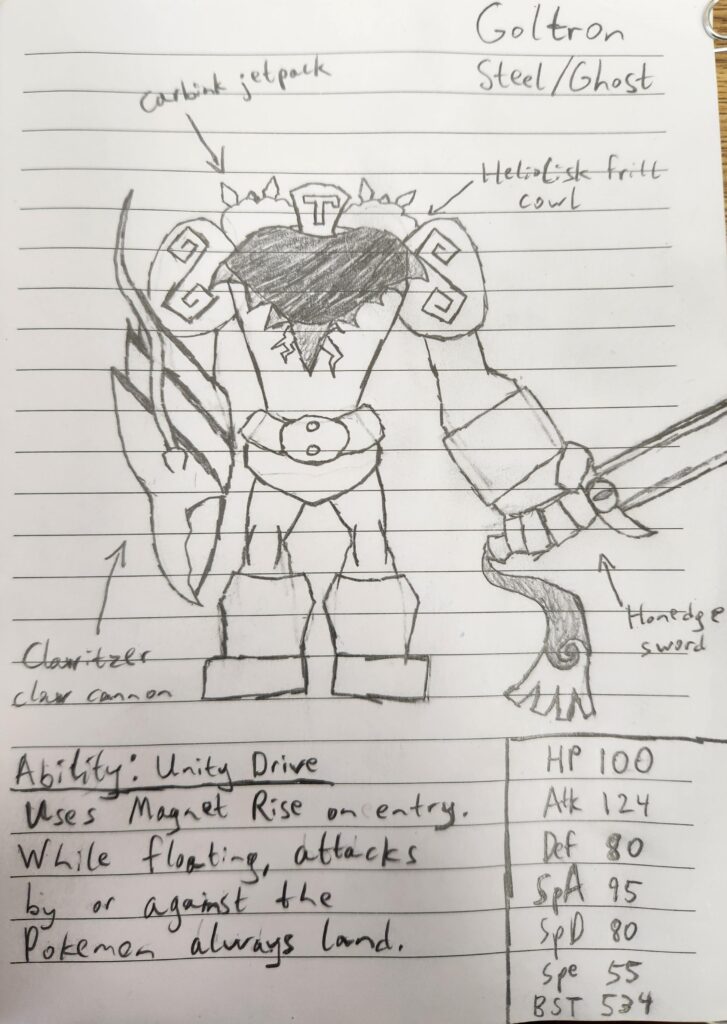 Goltron
Steel/Ghost
Carbink jetpack
Heliolisk frill
cowl
T
Clawitzer
claw cannon
Honedge
sword
Ability: Unity Drive
Uses Magnet Rise on entry.
While floating, attacks
by or against the
Pokemon always land.
HP 100
Atk 124
Def 80
SpA 95
SpD 80
Spe 55
BST 534